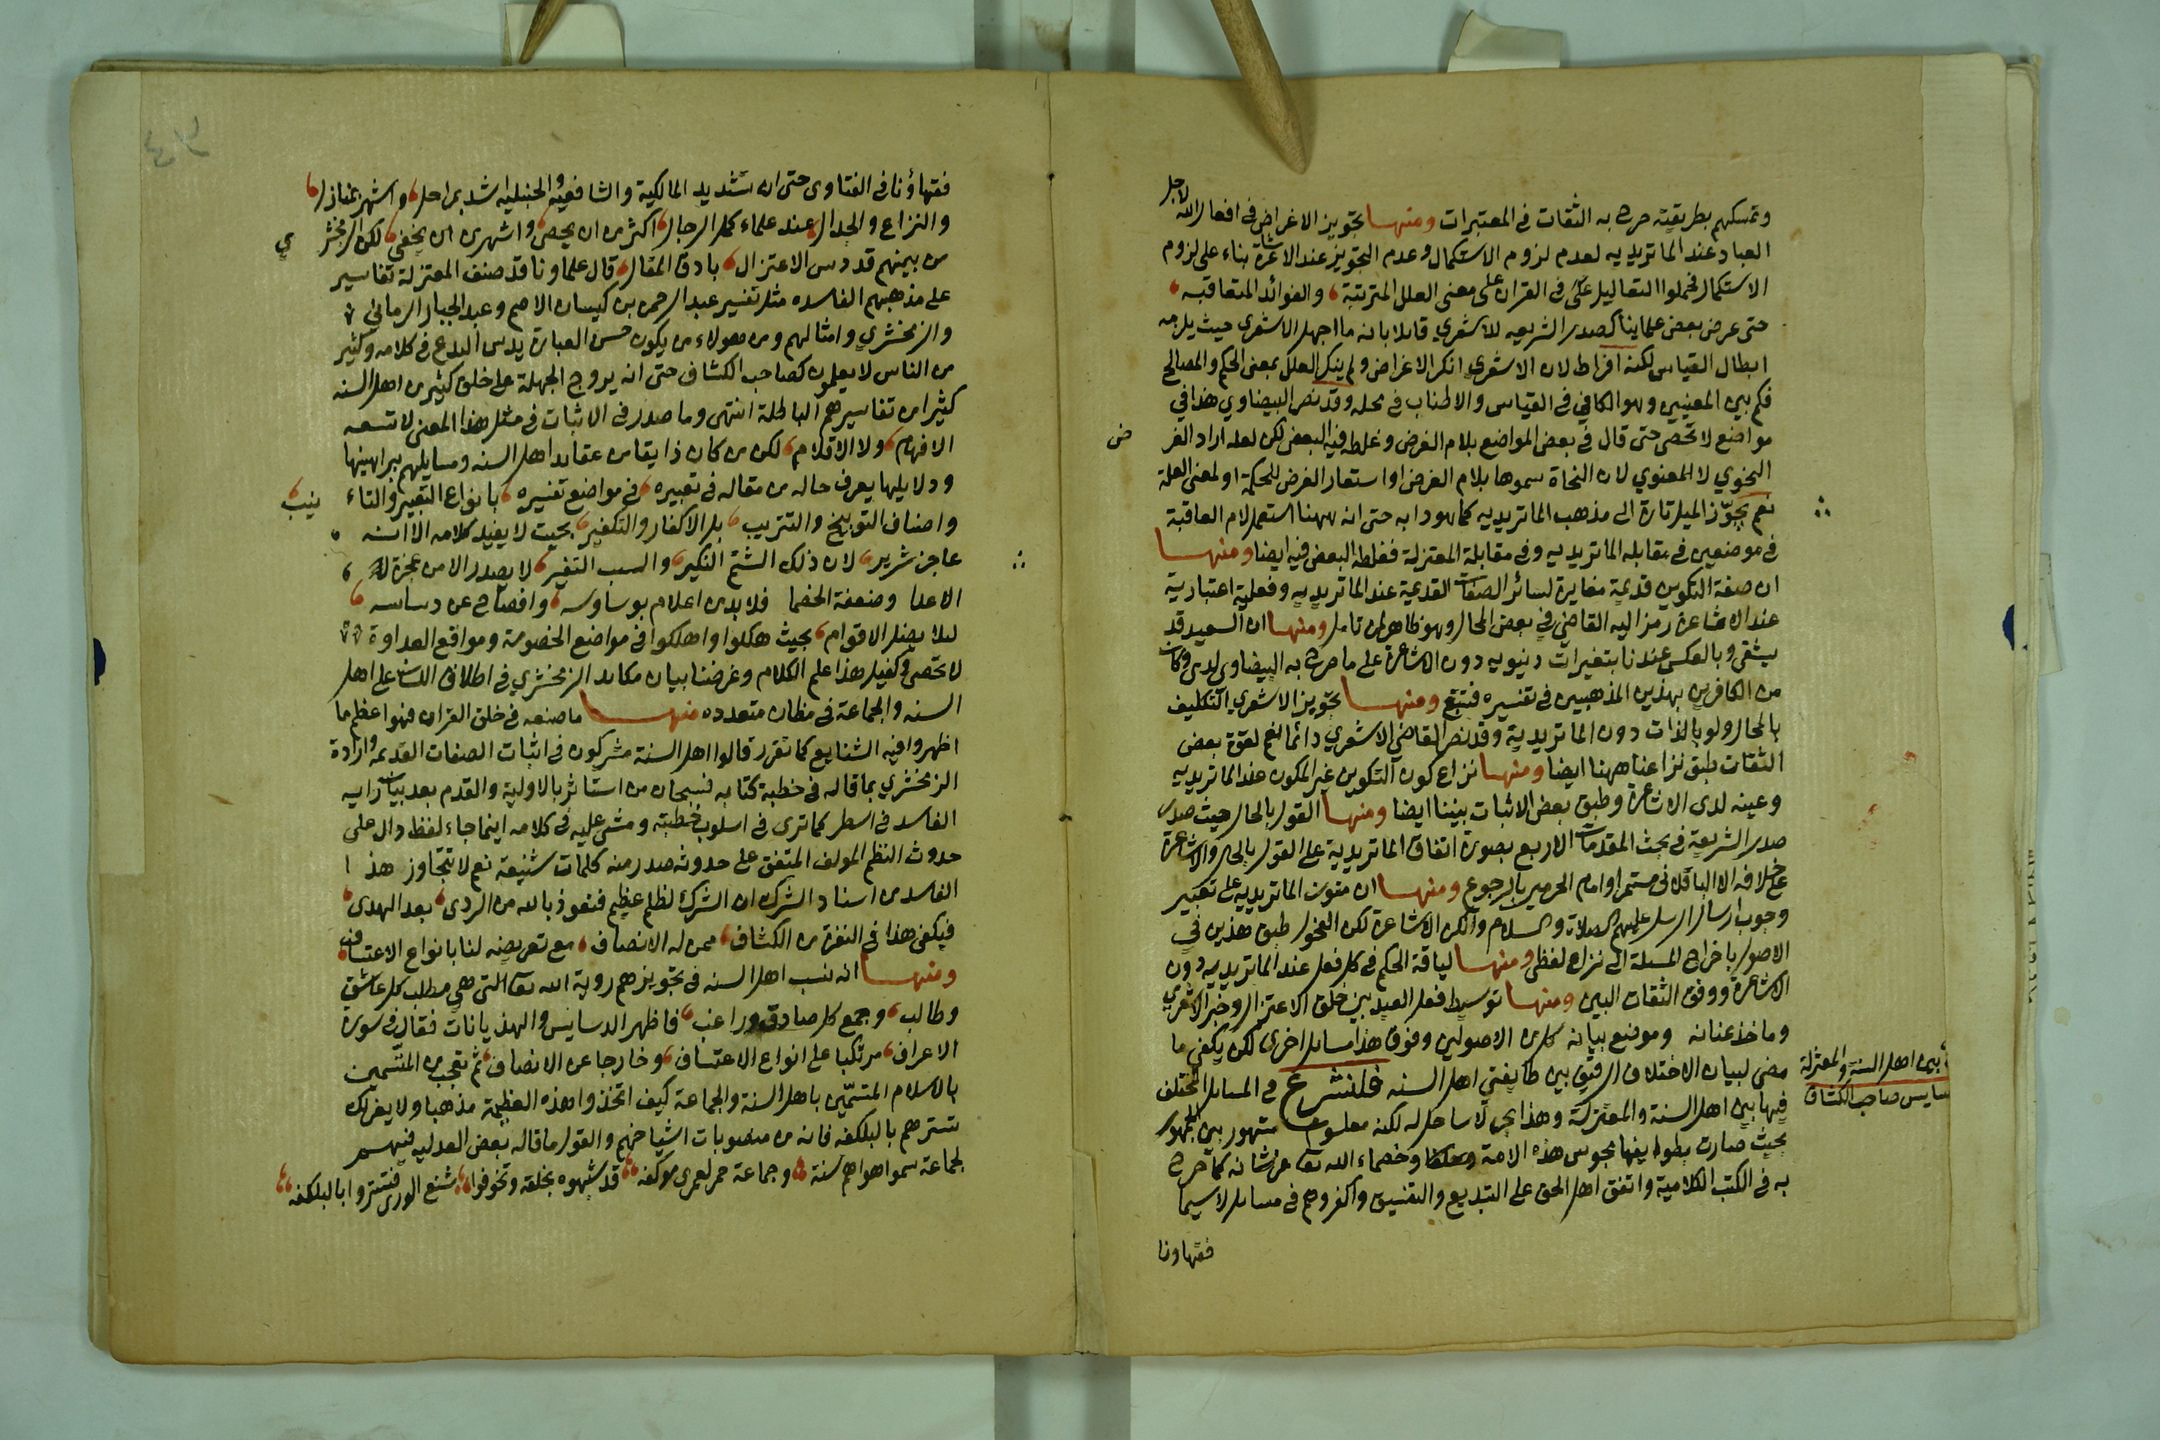 وتمسكهم بطريقته صرح به الثقات في المعتبرات ومنها تجويز الاغراض في افعال الله لاجل
العباد عند الماتريديه لعدم لزوم الاستكمال وعدم التجويز عند الاشاعرة بناء على لزوم
الاستكمال فحملوا التعاليل في القران على معنى العلل المترتبة والفوائد المتعاقبه
حتى عرض بعض علماينا كصدر الشريعه للاشعري قايلا بانه ما اجهل الاشعري حيث يلزمه
ابطال القياس لكنه افراط لان الاشعري انكر الاغراض ولم ينكر العلل بمعنى الحكم والمصالح
فكم بين المعنيين وهو الكافي في القياس والاطناب في محله وقد نص البيضاوي هذا في
مواضع لا تحصى حتى قال في بعض المواضع بلام الغرض وغلطه فيه البعض لكن لعله اراد الغر
ض
النحوي لا المعنوي لان النحاة سموها بلام الغرض او استعار الغرض للحكمة او لمعنى العلة
نعم يجوز الميل تارة الى مذهب الماتريديه كما هو دابه حتى انه ههنا استعمل لام العاقبة
في موضعين في مقابله الماتريديه وفي مقابلة المعتزلة فغلطه البعض فيه ايضا ومنها
ان صفة التكوين قديمة مغايرة لسائر الصفات القديمة عند الماتريديه وفعلية اعتبارية
عند الاشاعرة رمز اليه القاضي في بعض المحال وهو ظاهر لمن تامل ومنها ان السعيد قد
يشقى وبالعكس عندنا بتغيرات دنيويه دون الاشاعرة على ما صرح به البيضاوي لدى وكان
من الكافرين بهذين المذهبين في تفسيره فتتبع ومنها تجويز الاشعري التكليف
بالمحال ولو بالذات دون الماتريدية وقد نص القاضي الاشعري دائما نعم لقوة بعض
الثقات طبق نزاعنا ههنا ايضا ومنها نزاع كون التكوين غير المكون عند الماتريديه
وعينه لدى الاشاعرة وطبق بعض الاثبات بيننا ايضا ومنها القول بالحال حيث صدر
صدر الشريعة في بحث المقدمات الاربع بصورة اتفاق الماتريدية على القول بالحال والاشاعرة
على خلافه الا الباقلاني مستمرا وامام الحرمين بالرجوع ومنها ان متون الماتريديه على تعبير
وجوب ارسال الرسل عليهم الصلاة والسلام وانكره الاشاعرة لكن الفحول طبق هذين في
الاصول باخراج المسئلة الى نزاع لفظي ومنها لياقة الحكم في كل فعل عند الماتريديه دون
الاشاعرة ووفق الثقات البين ومنها توسيط فعل العبد بين خلق الاعتزال وخبر الاشعري
وماخذ عنانه وموضع بيانه كلام الاصوليين وفوق هذا مسايل اخرى لكن يكفي ما
مضى لبيان الاختلاف الرقيق بين طايفتي اهل السنه فلنشرع في المسايل المختلف
بين اهل السنة والمعتزلة
دسايس صاحب الكشاف
فيها بين اهل السنة والمعتزلة وهذا بحر لا ساحل له لكنه معلوم مشهور بين الجمهور
بحيث صارت بطولعنها مجوس هذه الامة وخصماء الله تعا عز شانه كما صرح
به في الكتب الكلامية واتفق اهل الحق على التبديع والتفسيق واكفروهم في مسايل لا سيما
فقهاونا
فقهاؤنا في الفتاوى حتى ان تشديد المالكية والشافعيه والحنبليه اشد بمراحل واشهر بمنازل
والنزاع والجدال عند علماء كمل الرجال اكثر من ان يحصى واشهر من ان يخفى لكن الزمخشر
ي
من بينهم قد دس الاعتزال بادق المقال قال علماونا قد صنف المعتزلة تفاسير
على مذهبهم الفاسده مثل تفسير عبد الرحمن بن كيسان الاصم وعبد الجبار الرماني
والزمخشري وامثالهم ومن هولاء من يكون حسن العبارة يدس البدع في كلامه وكثير
من الناس لا يعلمون كصاحب الكشاف حتى انه يروج الجهلة على خلق كثير من اهل السنه
كثيرا من تفاسيرهم الباطلة انتهى وما صدر في الاثبات في مثل هذا المعنى لا تسعه
الافهام ولا الاقلام لكن من كان ذايقا من عقايد اهل السنه ومسايلهم ببراهينها
ودلايلها يعرف حاله من مقاله في تعبيره في مواضع تفسيره بانواع التعيير والتاء
نيب
واصناف التوبيخ والتثريب بل الاكفار والتكفير بحيث لا يفيد كلامه الا انه
عاجز شرير لان ذلك الشتم النكير والسب التغير لا يصدر الا من عجزة
الاعدا وضعفة الخصما فلا بد من اعلام بوساوسه وافصاح عن دساسه
لئلا يضل الاقوام بحيث هلكوا واهلكوا في مواضع الخصومة ومواقع العداوة
لا تحصى وكفيل هذا علم الكلام وغرضنا بيان مكايد الزمخشري في اطلاق اللسان على اهل
السنه والجماعة في مظان متعدده منها ما صنعه في خلق القران فهو اعظم ما
اظهروا فيه الشنايع كما تقرر قالوا اهل السنة مشركون في اثبات الصفات القديمه وارادة
الزمخشري بما قاله في خطبة كتابه فسبحان من استاثر بالاولية والقدم بعد بيان رايه
الفاسد في اسطر كما ترى في اسلوب خطبته ومشى عليه في كلامه اينما جاء لفظ دال على
حدوث النظم المولف المتفق على حدوثه صدر منه كلمات شنيعة نعم لا تتجاوز هذا
الفاسد من اسناد الشرك ان الشرك لظلم عظيم فنعوذ بالله من الردى بعد الهدى
فيكفي هذا في النفرة من الكشاف ممن له الانصاف مع تعريضه لنا بانواع الاعتساف
ومنها انه نسب اهل السنه في تجويزهم روية الله تعا التي هي مطلب كل عاشق
وطالب ومجمع كل صادق وراغب فاظهر الدسايس والهذيانات فقال في سورة
الاعراف مرتكبا على انواع الاعتساف وخارجا عن الانصاف ثم تعجب من المتسمين
بالاسلام المتسمين باهل السنة والجماعة كيف اتخذوا هذه العظيمة مذهبا ولا يغرنك
تسترهم بالبلكفه فانه من منصوبات اشياخهم والقول ما قاله بعض العدليه فيهم
لجماعة سموا هواهم سنة وجماعة حمر لعمري موكفه قد شبهوه بخلقه وتخوفوا شنع الورى فتستروا بالبلكفه